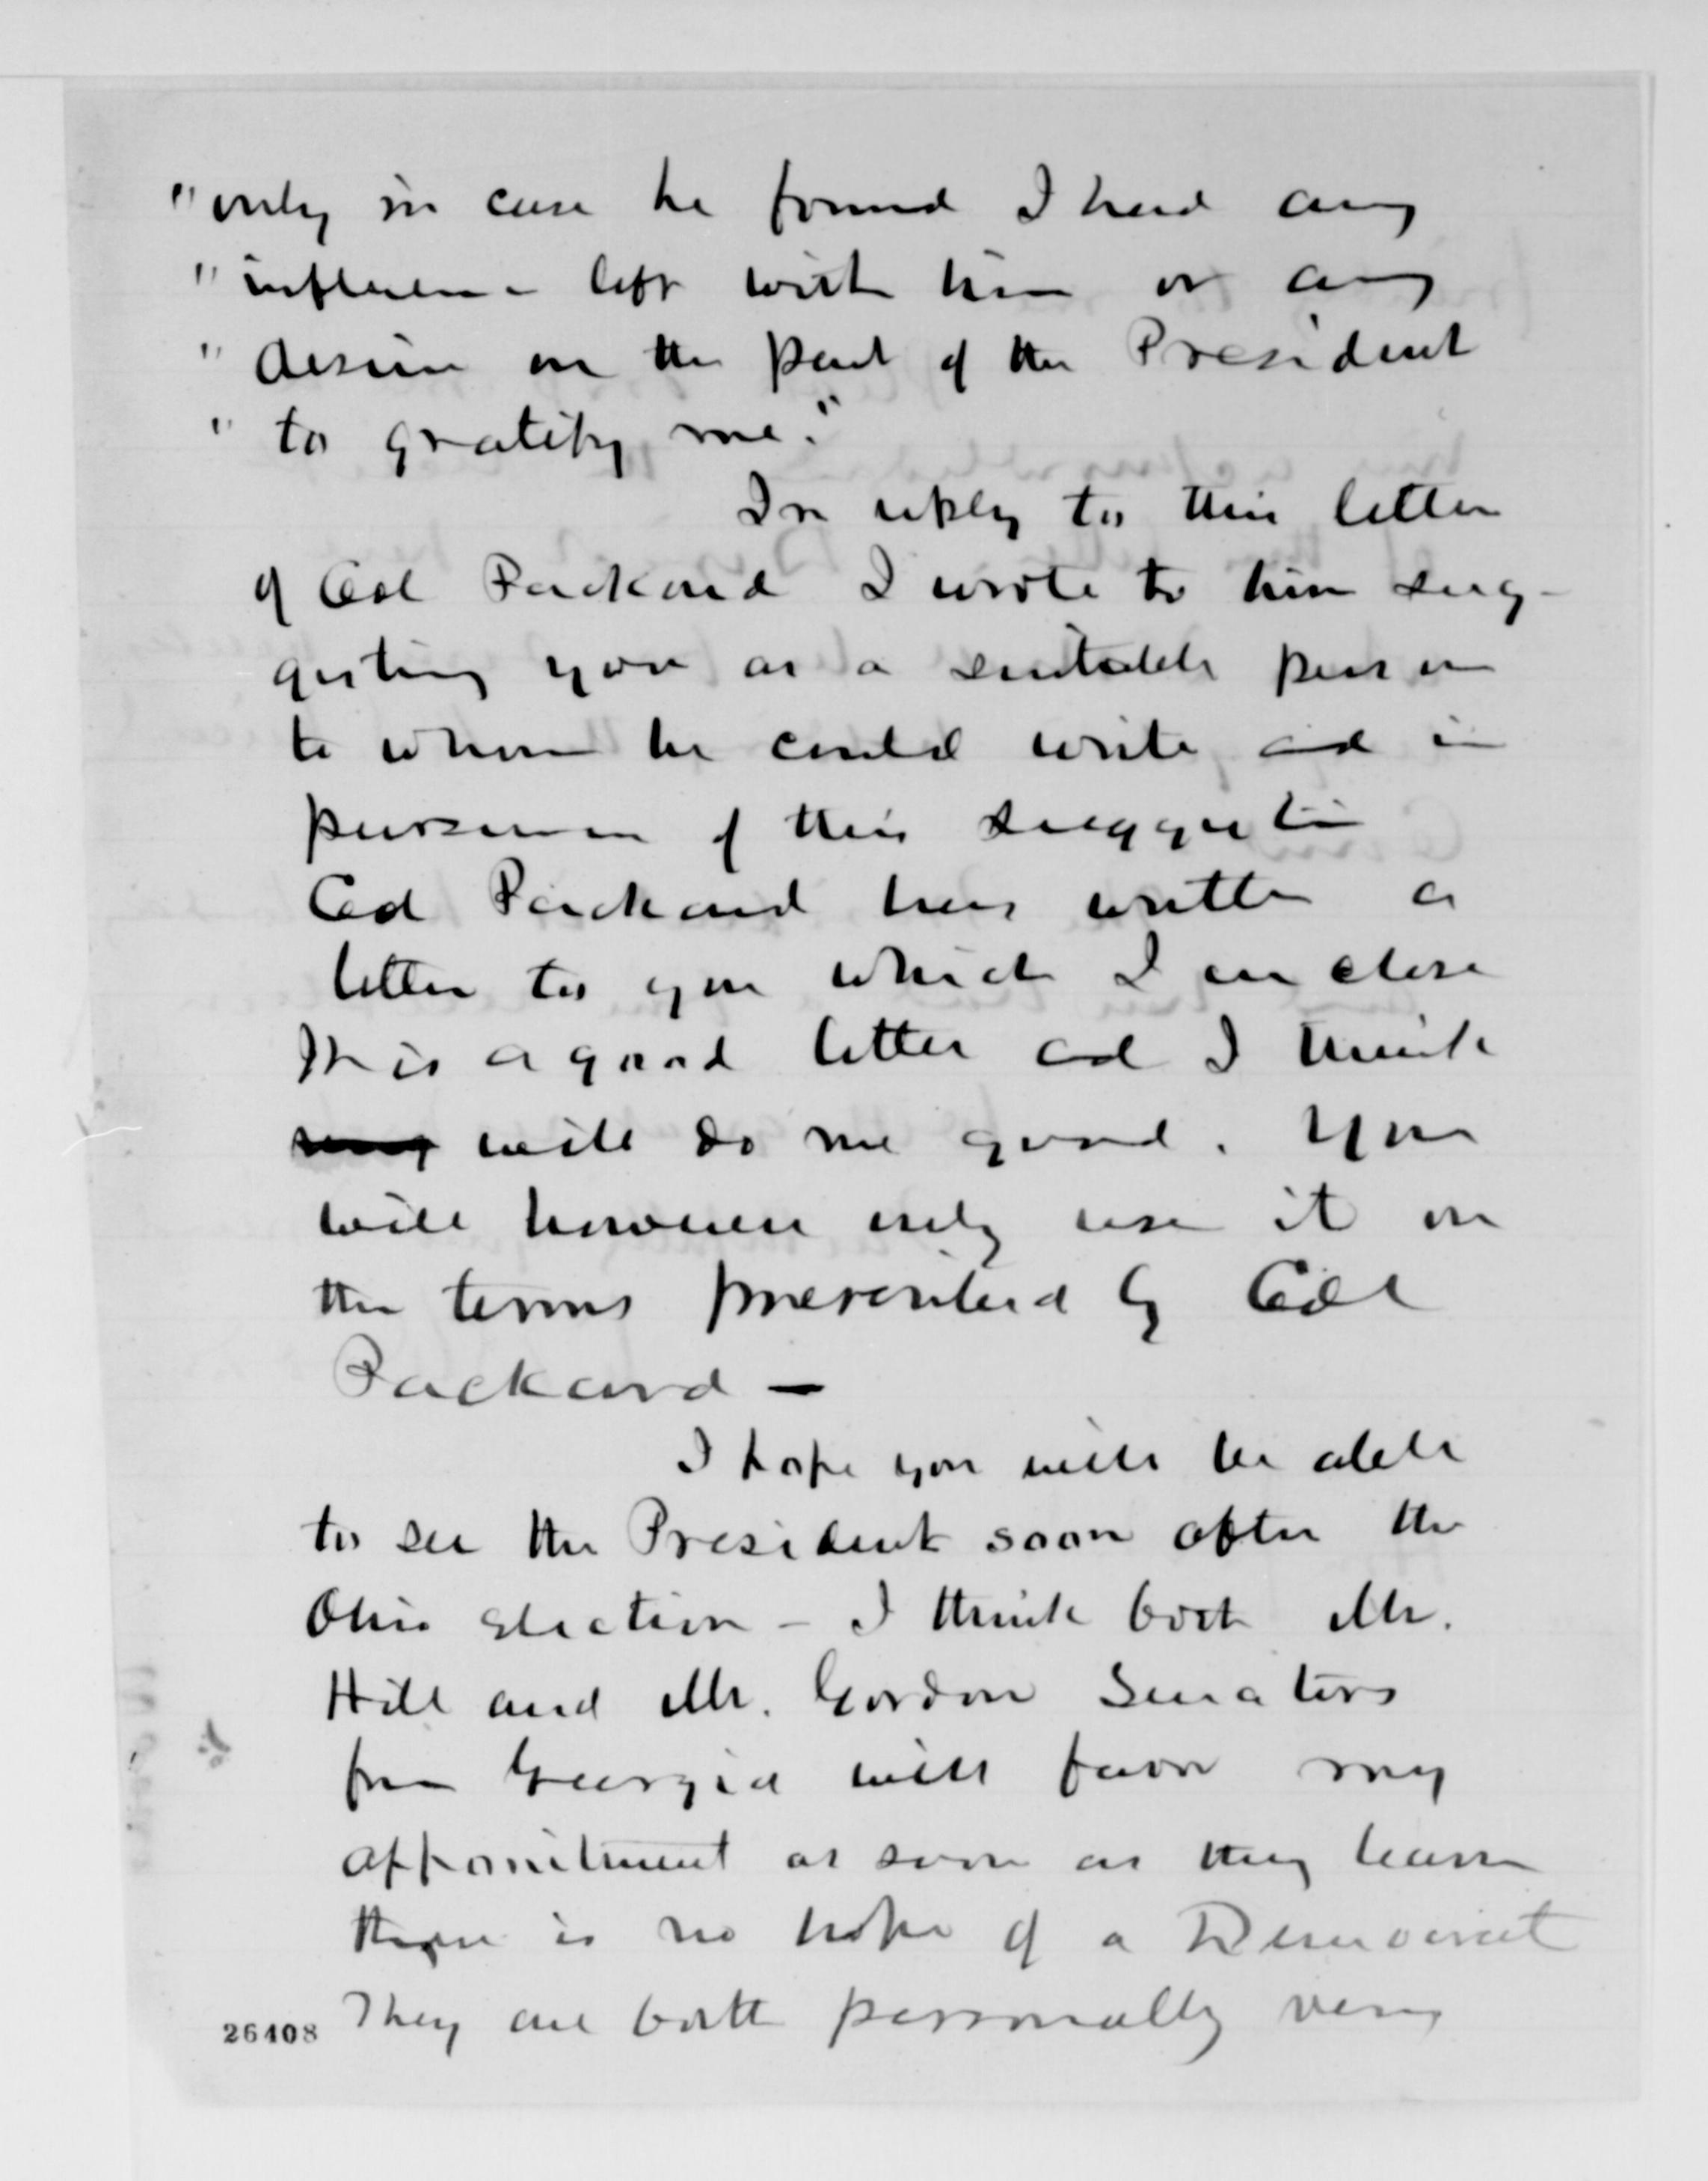 "only in case he found I had any
"influence left with him or any
"desire on the part of the President
"to gratify me."
In reply to this letter
of Col Packard I wrote to him sug-
gesting you as a suitable person
to whom he could write, and in
pursuance of this suggestion
Col Packard has written a
letter to you which I enclose
It is a good letter and I think
will do me good. You
will however only use it on
the terms prescribed by Col
Packard —
I hope you will be able
to see the President soon after the
Ohio election - I think both Mr.
Hill and Mr. Gordon Senators
from Georgia will favor my
appointment as soon as they learn
there is no hope of a Democrat
They are both personally very
26408